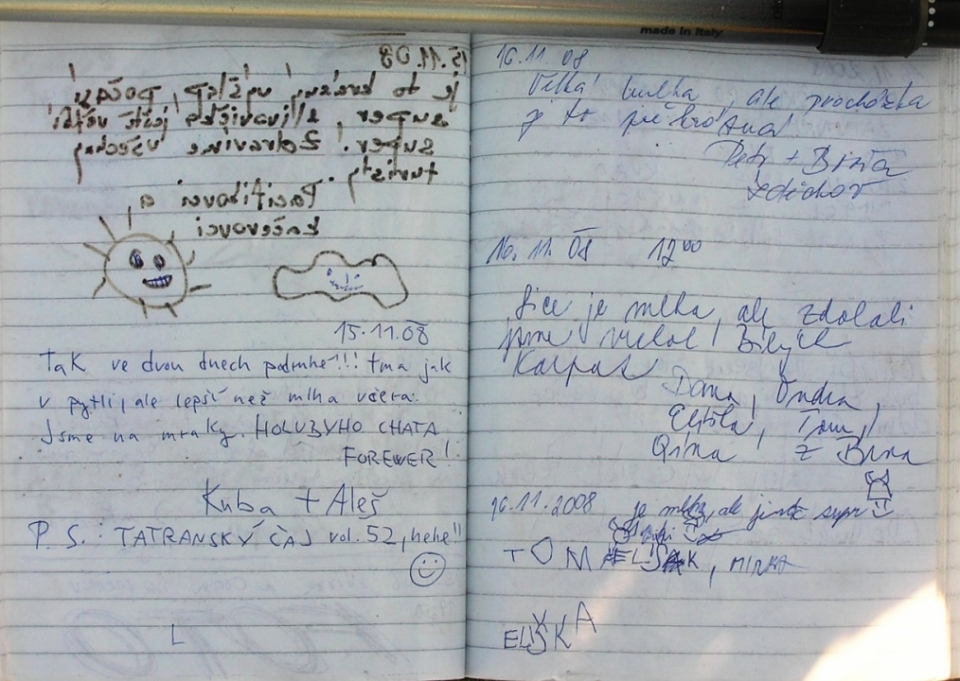 made in Italy
15.11.08
je to krásný výšlap, počasí
super, slivovička ještě větší
super! Zdravíme všechny
turisty.
a
kačerovci
15.11.08
Tak ve dvou dnech podruhé!!! tma jak
v pytli, ale lepší než mlha včera.
Jsme na mraky. HOLUBYHO CHATA
FOREWER!
Kuba + Aleš
P.S.: TATRANSKÝ ČAJ vol. 52, hehe!!
L
16.11.08
Velká mlha, ale procházka
je to překrásná
Petr +
16.11.08 12⁰⁰
Sice je mlha, ale zdolali
jsme vrchol Bílých
Karpat
Dana, Ondra,
Eliška, Tom,
z Brna
16.11.2008 je mlha, ale jinak supr
TOM, MIRKA
ELIŠKA